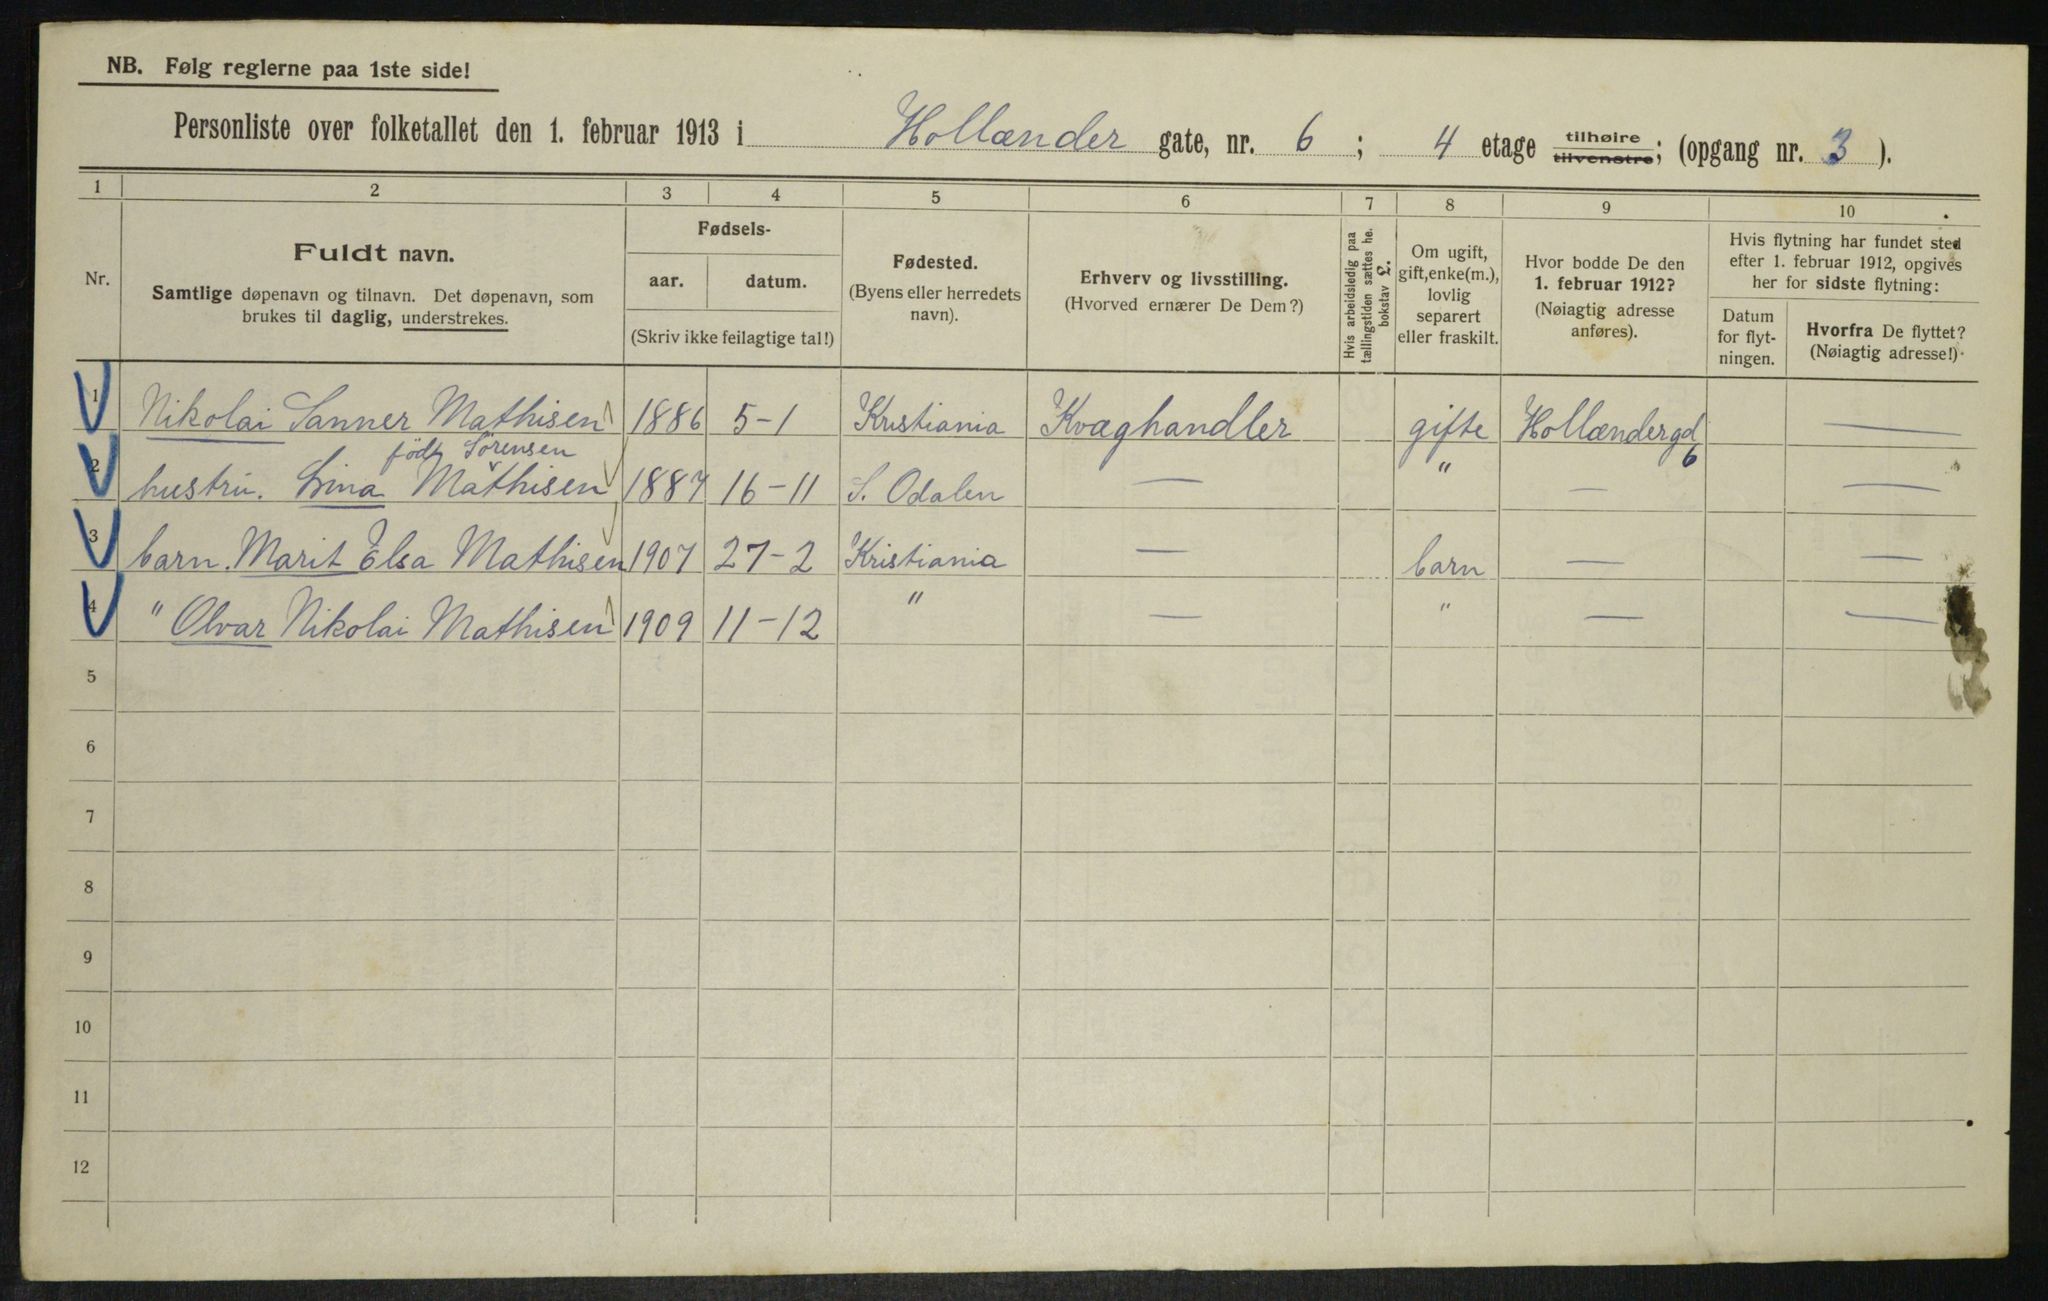 NB. Følg reglerne paa 1ste side!
Personliste over folketallet den 1. februar 1913 i Hollænder gate, nr. 6 ; 4 etage tilhøire tilvenstre; (opgang nr. 3 ).
1 2 3 4 5 6 7 8 9 10
Nr.
Fuldt navn.
Samtlige døpenavn og tilnavn. Det døpenavn, som
brukes til daglig, understrekes.
Fødsels-
aar. datum.
(Skriv ikke feilagtige tal!)
Fødested.
(Byens eller herredets
navn).
Erhverv og livsstilling.
(Hvorved ernærer De Dem?)
Hvis arbeidsledig paa
tællingstiden sættes he.
bokstav £.
Om ugift,
gift, enke(m.),
lovlig
separert
eller fraskilt.
Hvor bodde De den
1. februar 1912?
(Nøiagtig adresse
anføres).
Hvis flytning har fundet sted
efter 1. februar 1912, opgives
her for sidste flytning:
Datum
for flyt-
ningen.
Hvorfra De flyttet?
(Nøiagtig adresse!)
1 Nikolai Sanner Mathisen 1886 5-1 Kristiania Kvæghandler gifte Hollændergd 6 —
født Sörensen
2 hustru. Lina Mathisen 1887 16-11 S. Odalen — " — —
3 barn. Marit Elsa Mathisen 1907 27-2 Kristiania — barn — —
4 " Olvar Nikolai Mathisen 1909 11-12 " — " — —
5
6
7
8
9
10
11
12